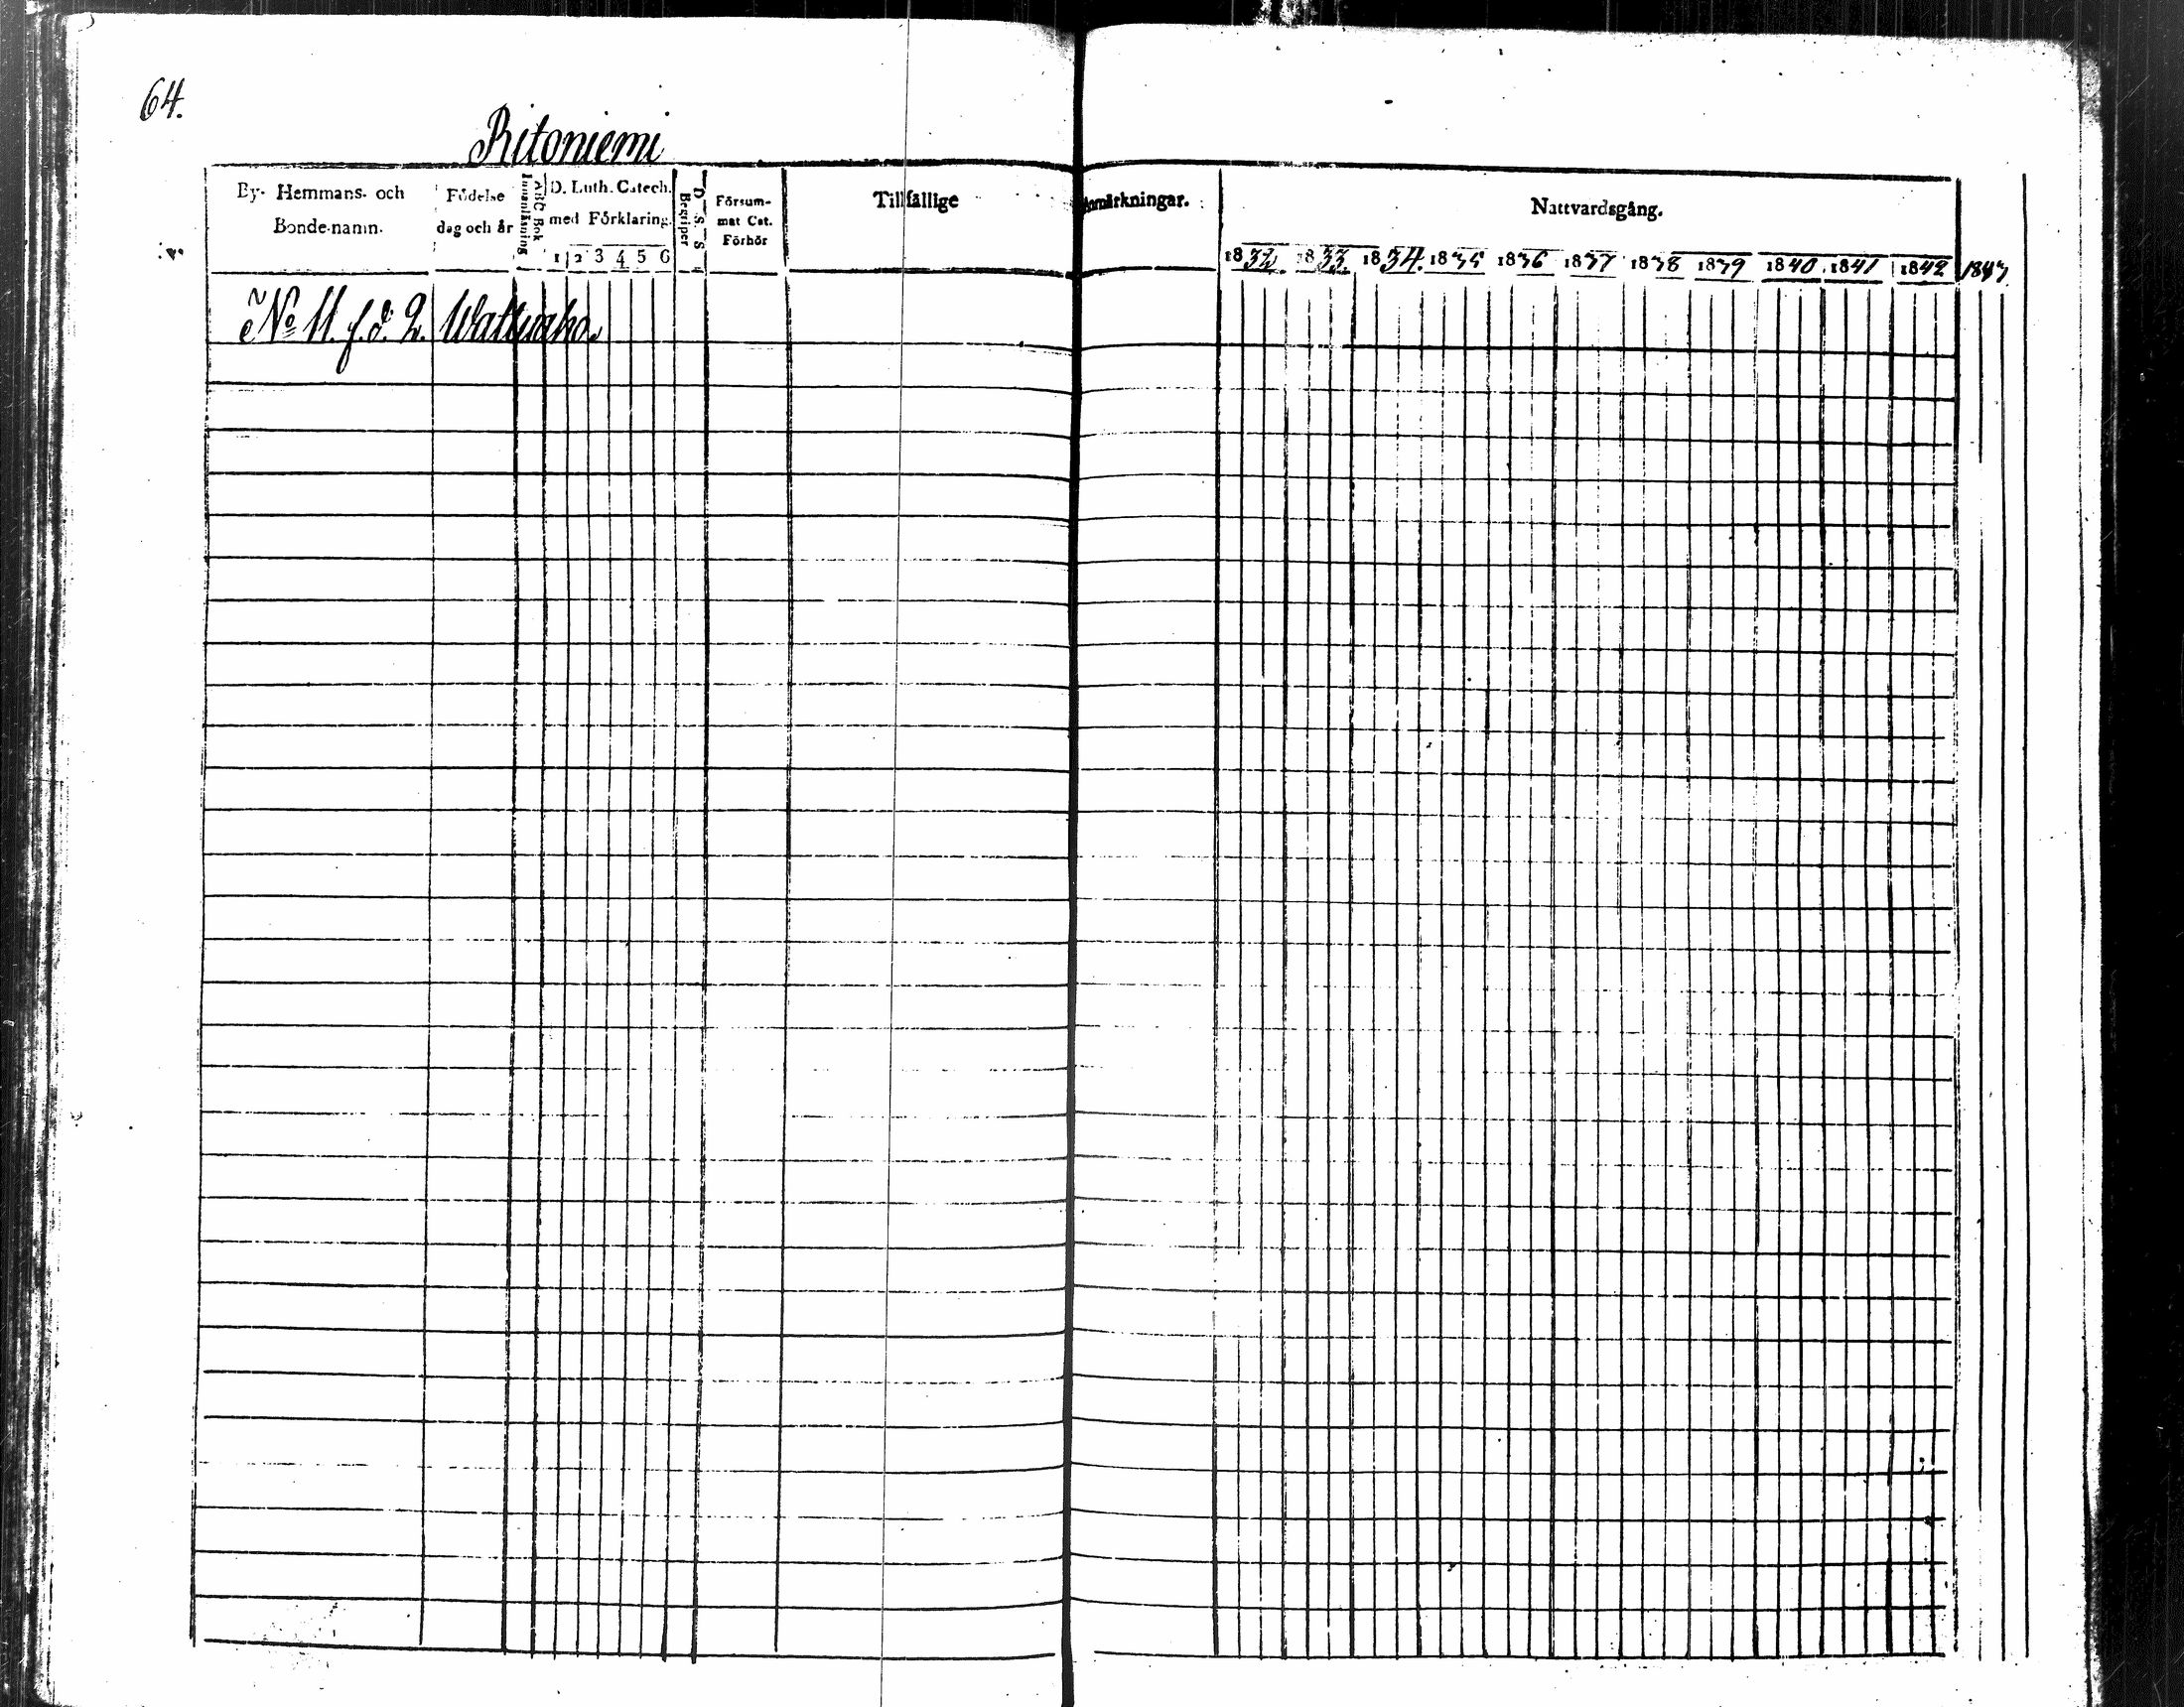 64.
Ritoniemi
By- Hemmans- och Bonde-namn.
Födelse dag och år
Innanläsning
ABC Bok
D. Luth. Catech. med Förklaring.
1 2 3 4 5 6
Begriper
D. S. S
Försum- mat Cat. Förhör
Tillfällige Anmärkningar.
Nattvardsgång.
1832. 1833. 1834. 1835 1836 1837 1838 1839 1840. 1841 1842 1843.
No 11. f.d. 2. Wattuaho.